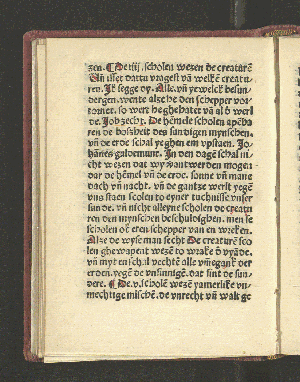 zen. ¶ De iiij. scholen wezen de creaturē
Uñ isset dattu vragest vā welkē creatu-
ren. Ik segge dy. Alle. vñ yewelck besun-
dergen. wente alze he den schepper vor-
tornet. so wert he ghehatet vā al ō werl
de. Job zecht. De hēmele scholen apēba
ren de boßheit des sundigen mynschen.
vñ de erde schal yeghen em vpstaen. Jo-
hānes guldemunt. In den dagē schal ni-
cht wezen dat wy antwerden mogen
dar de hēmel vñ de erde. sonne vñ mane
dach vñ nacht. vñ de gantze werlt yegē
vns staen scolen to eyner tuchnisse vnser
sun de. vñ nicht alleyne scholen de creatu
ren den mynschen beschuldighen. men se
scholen ok eren schepper van en wreken.
Alze de wyse man secht De creaturē sco
len ghewapent wezē to wrake ō vyāde.
vñ myt en schal vechtē alle vmmeganck der
erden. yegē de vnsinnigē. dat sint de sun-
dere. ¶ De .v. scholē wezē yamerlike vn-
mechtige mischē. de vnrecht vñ walt ge